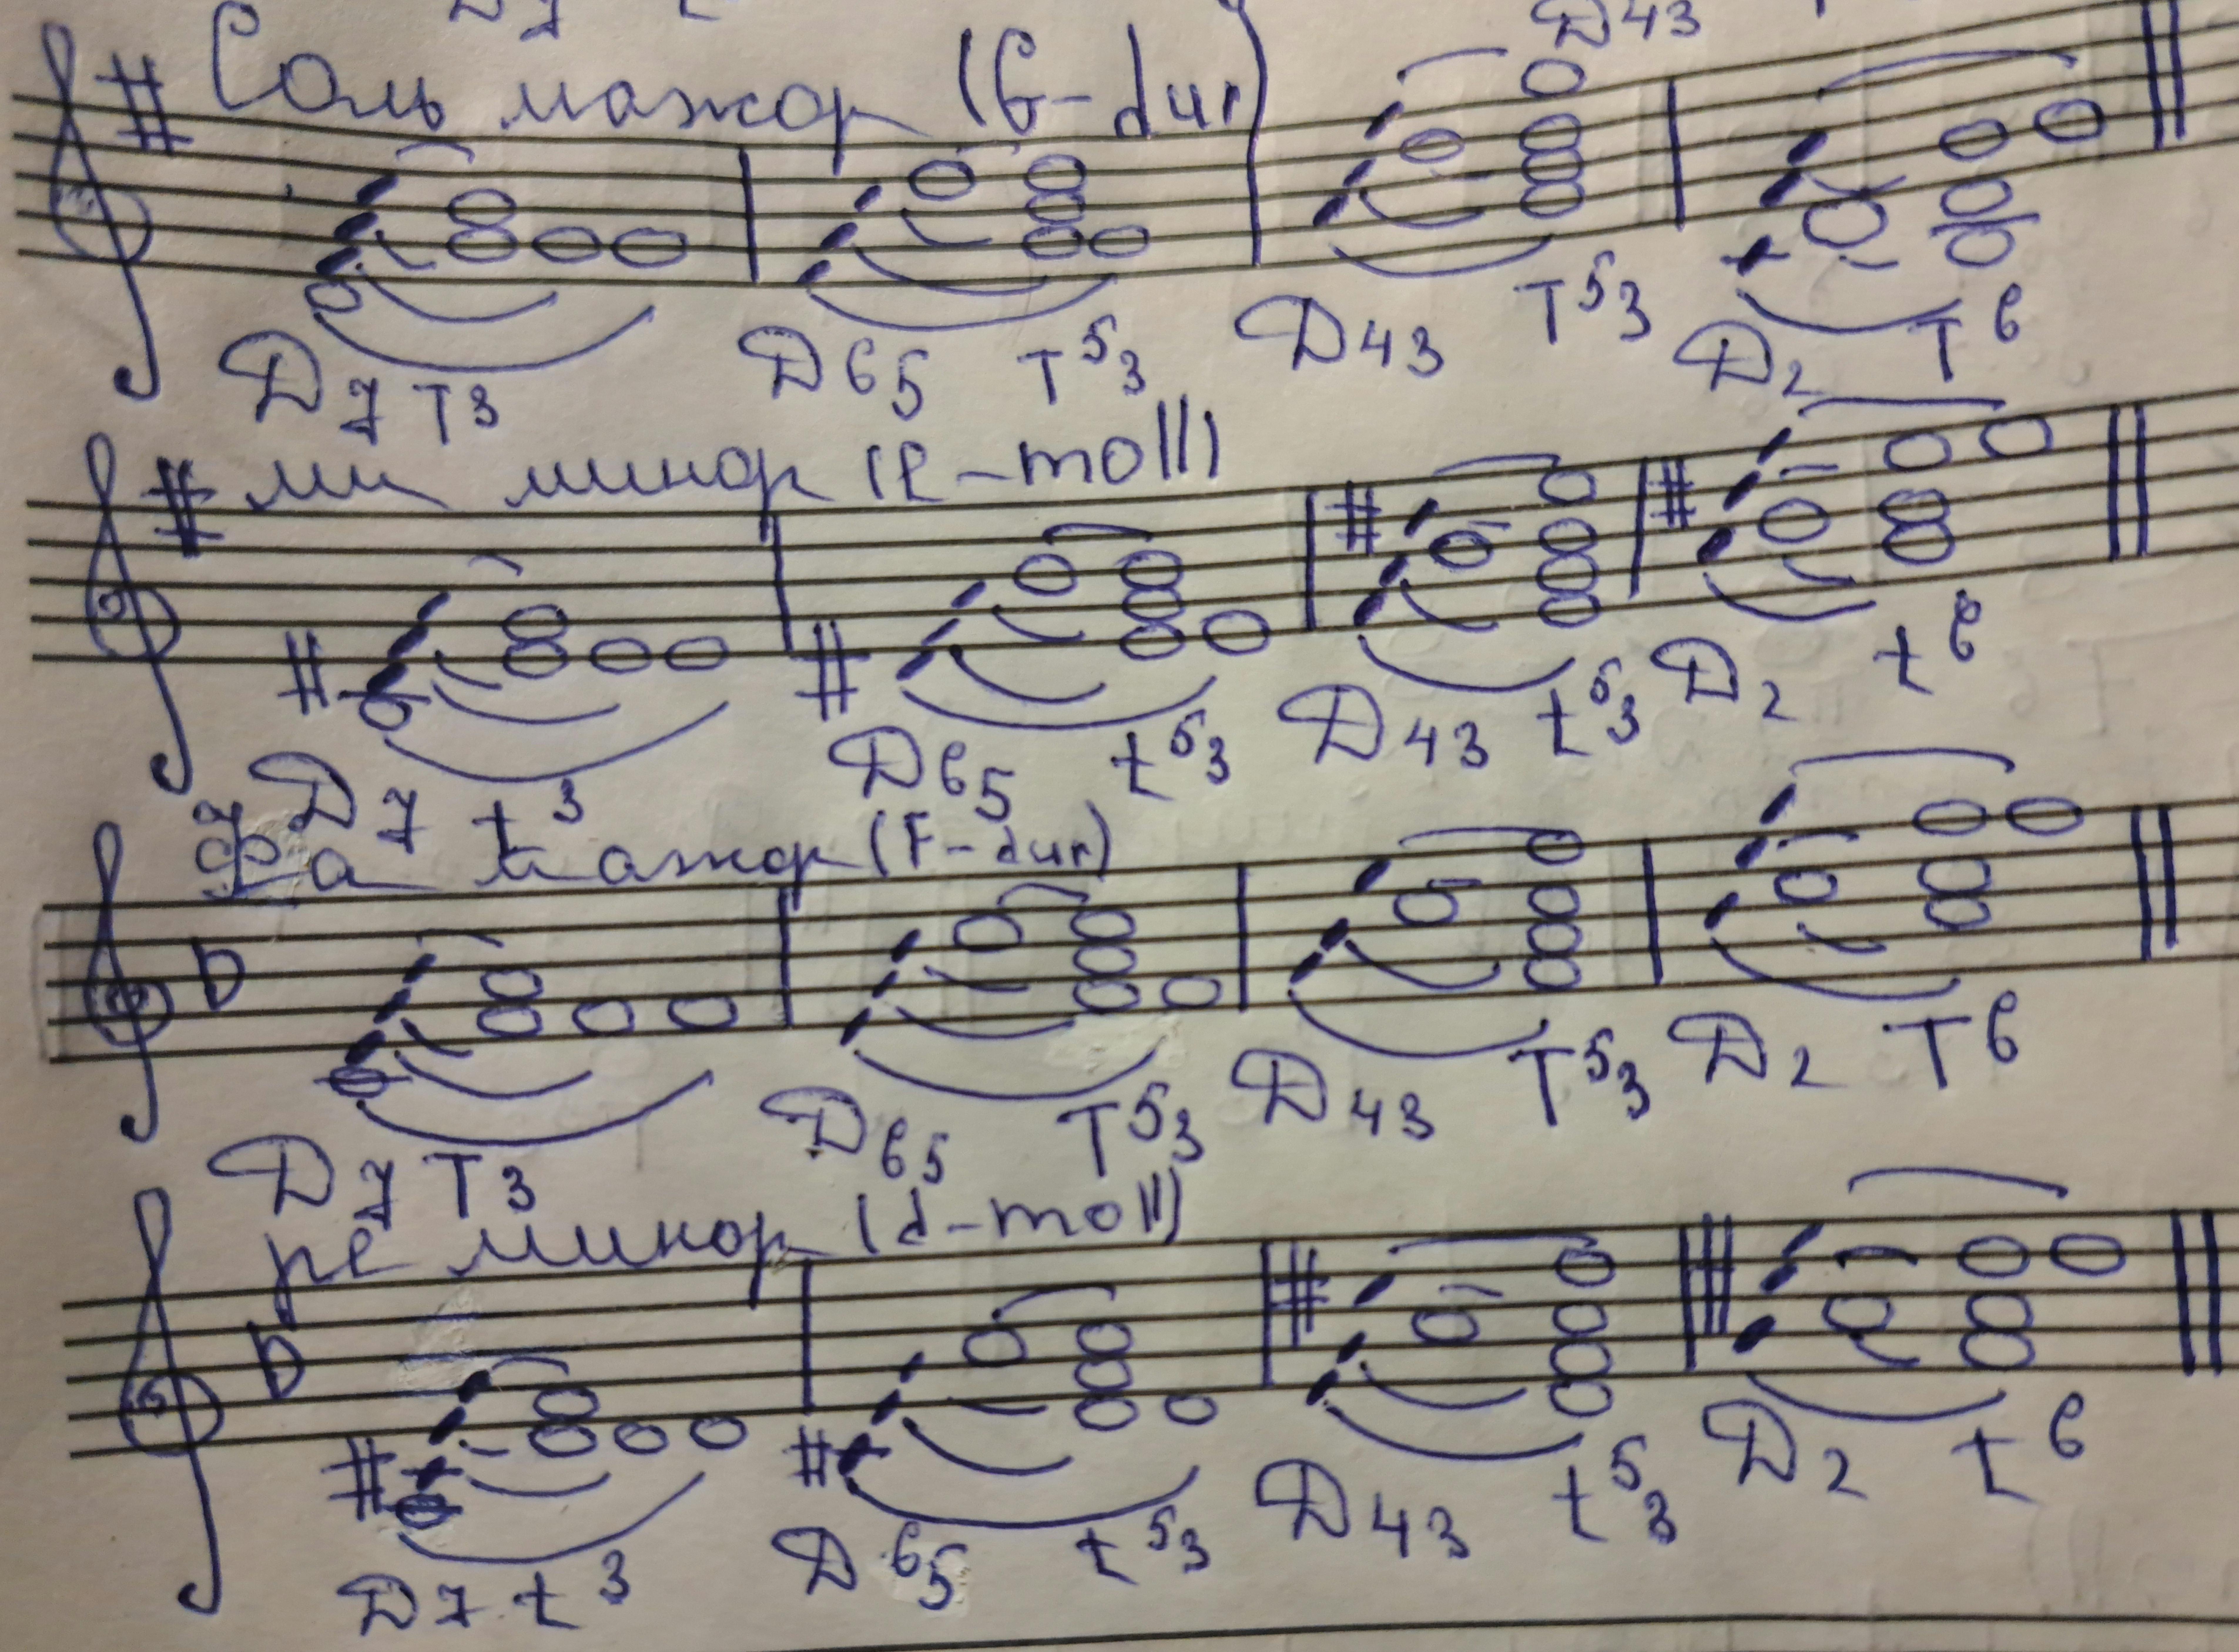 D43
Соль мажор (G-dur)
D7 T3 D65 T53 D43 T53 D2 T6
ми минор (e-moll)
D7 t3 D65 t53 D43 t53 D2 t6
Фа мажор (F-dur)
D7 T3 D65 T53 D43 T53 D2 T6
ре минор (d-moll)
D7 t3 D65 t53 D43 t53 D2 t6